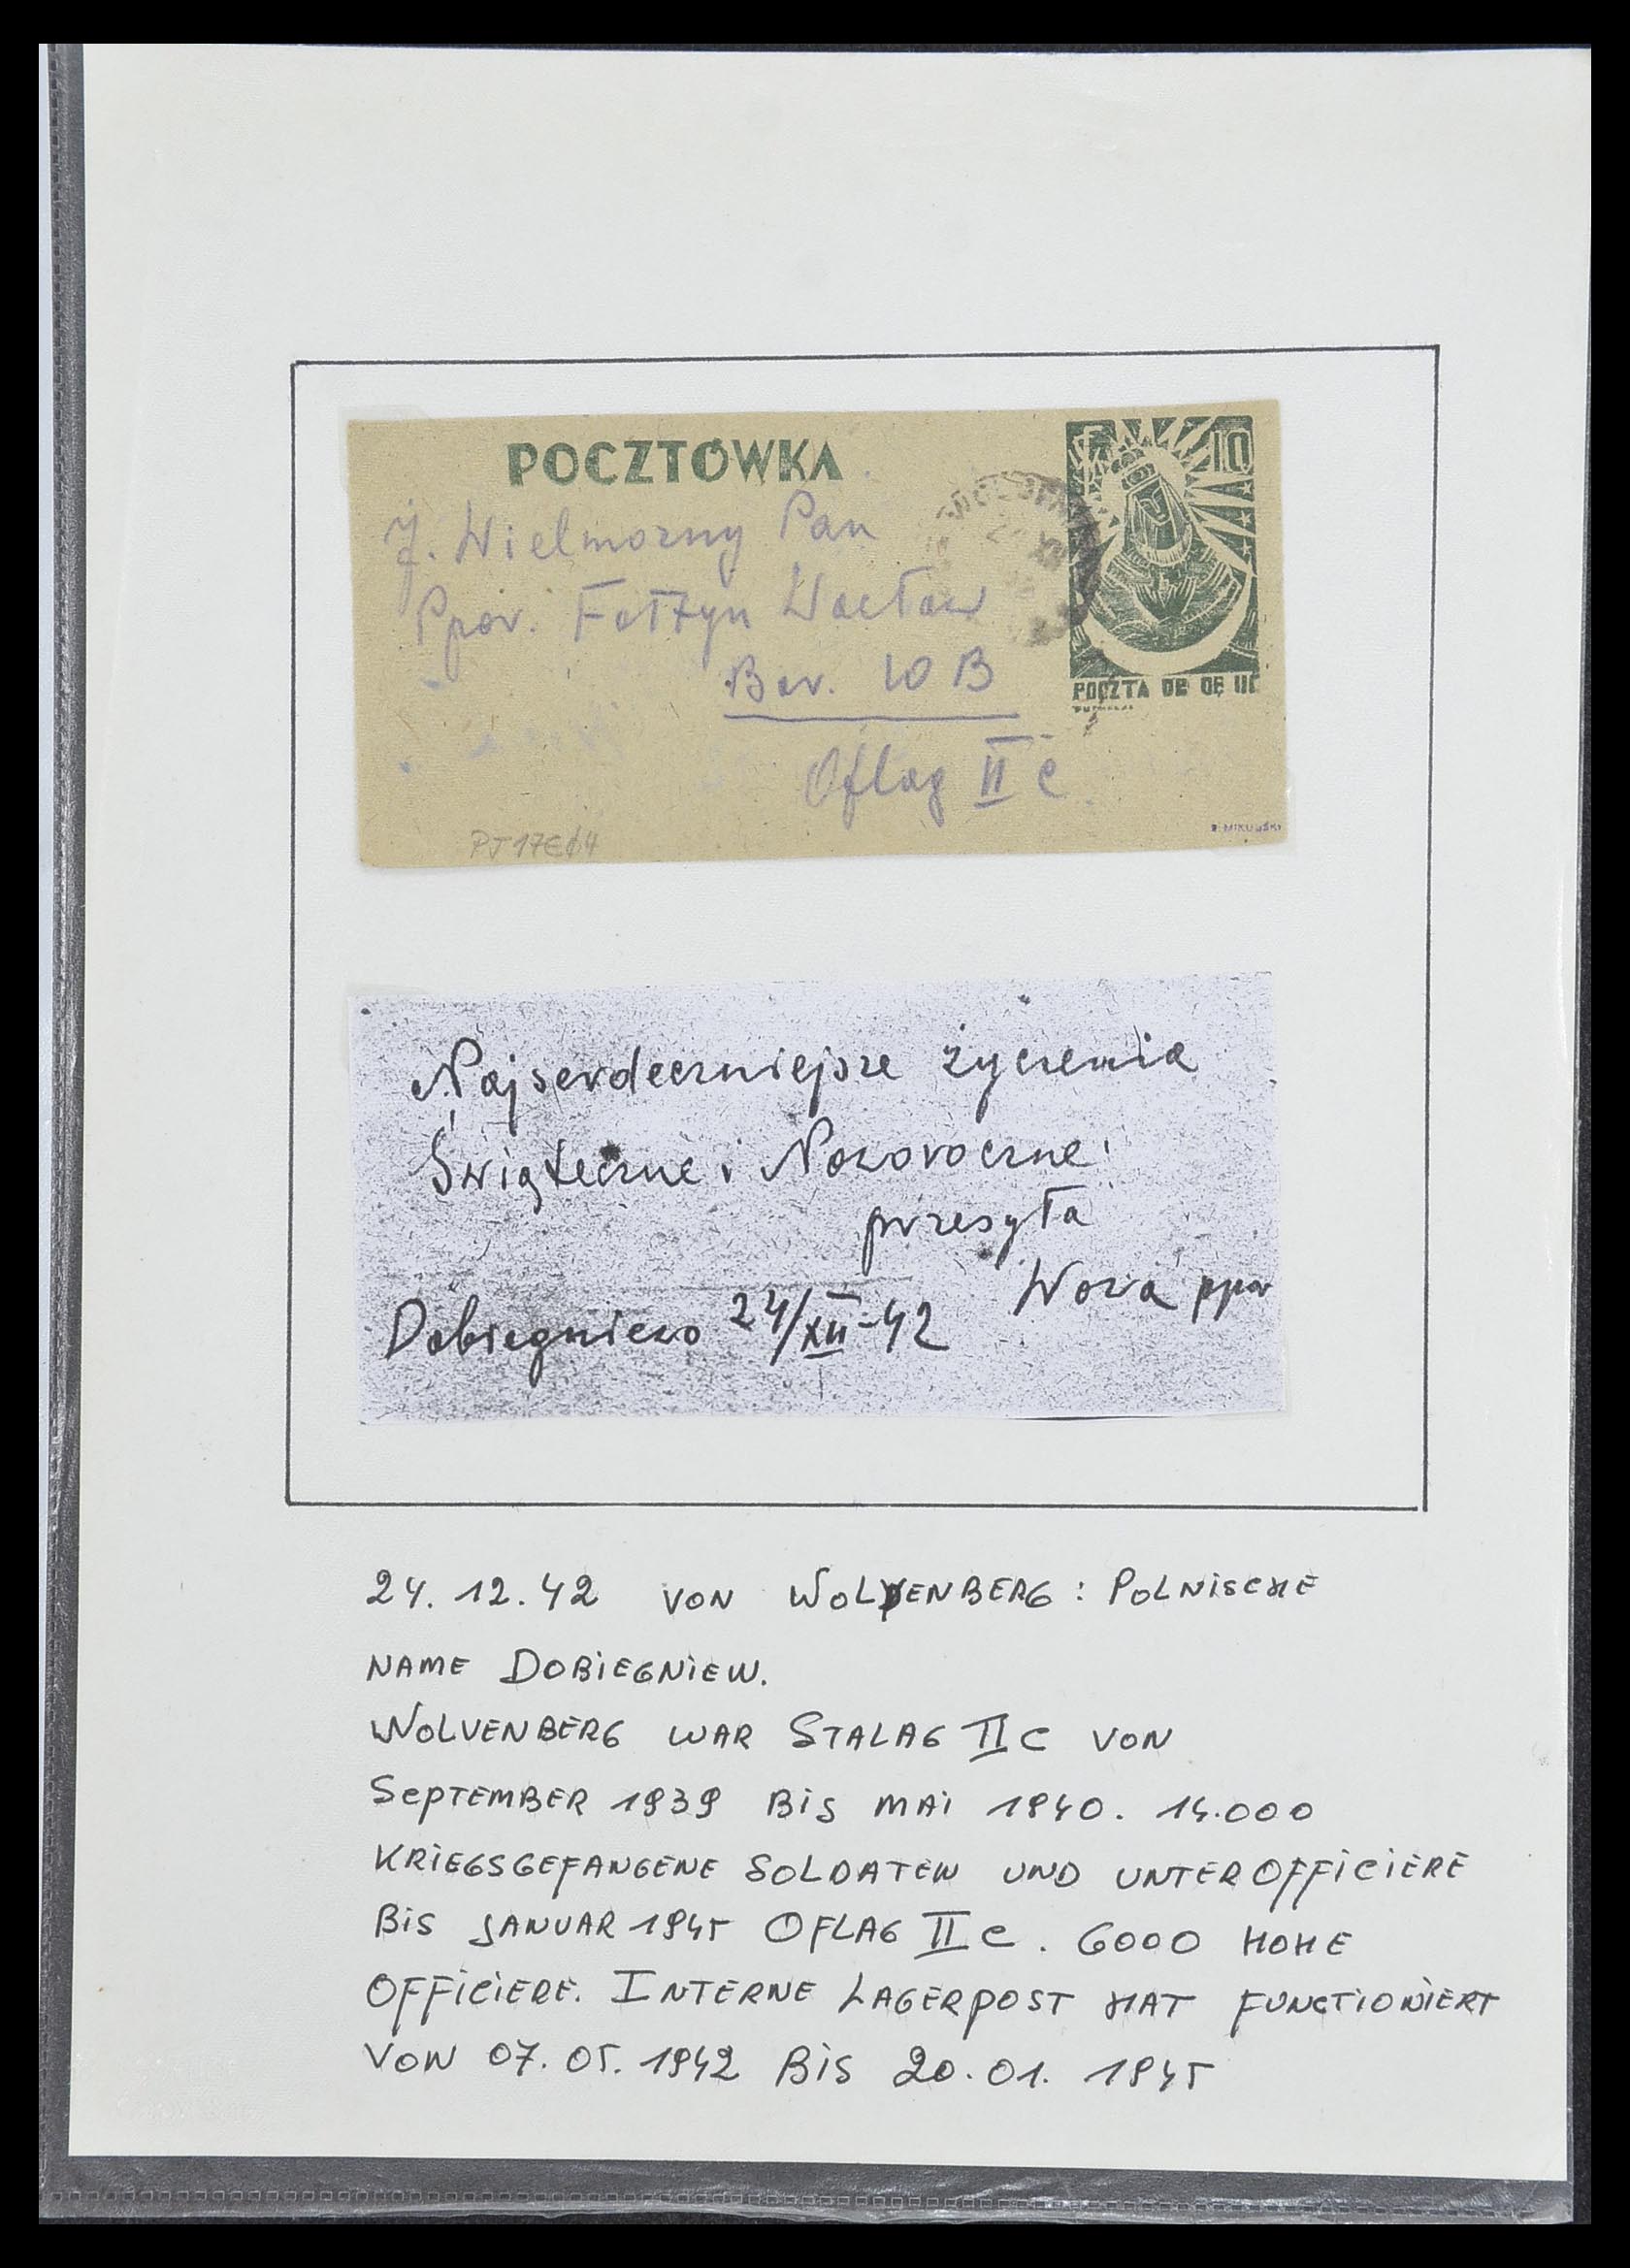 POCZTÓWKA
10
J. Wielmożny Pan
Ppor. Fołtyn Wacław
Bar. 10 B
Oflag II C
POCZTA OB OF IIC
PJ 17E 64
Z. MIKULSKI
Najserdeczniejsze życzenia
Świąteczne i Noworoczne
przesyła
Woźa ppor
Dobiegniewo 24/XII-42
24.12.42 VON WOLVENBERG: POLNISCHE
NAME DOBIEGNIEW.
WOLVENBERG WAR STALAG II C VON
SEPTEMBER 1939 BIS MAI 1940. 14.000
KRIEGSGEFANGENE SOLDATEN UND UNTEROFFICIERE
BIS JANUAR 1945 OFLAG II C. 6000 HOHE
OFFICIERE. INTERNE LAGERPOST HAT FUNCTIONIERT
VON 07.05.1942 BIS 20.01.1945